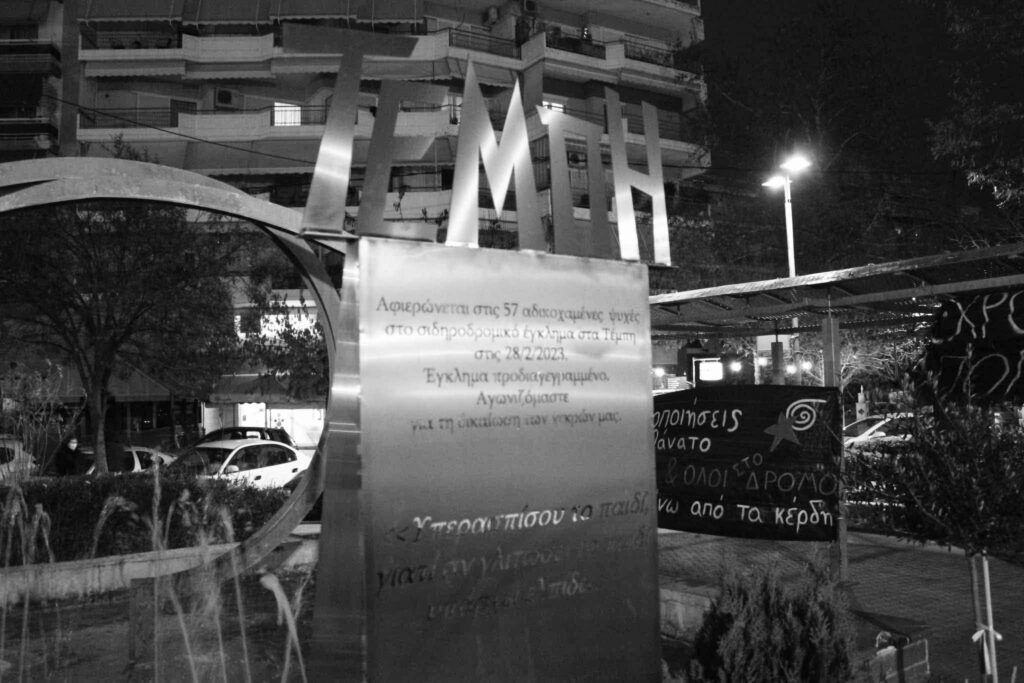 ΤΕΜΠΗ
Αφιερώνεται στις 57 αδικοχαμένες ψυχές
στο σιδηροδρομικό έγκλημα στα Τέμπη
στις 28/2/2023.
Έγκλημα προδιαγεγραμμένο.
Αγωνιζόμαστε
για τη δικαίωση των νεκρών μας.
«Υπερασπίσου το παιδί,
γιατί αν γλιτώσει το παιδί
υπάρχει ελπίδα
οποιήσεις
θάνατο
& ΟΛΟΙ ΣΤΟ ΔΡΟΜΟ
νω από τα κέρδη
ΧΡΟ